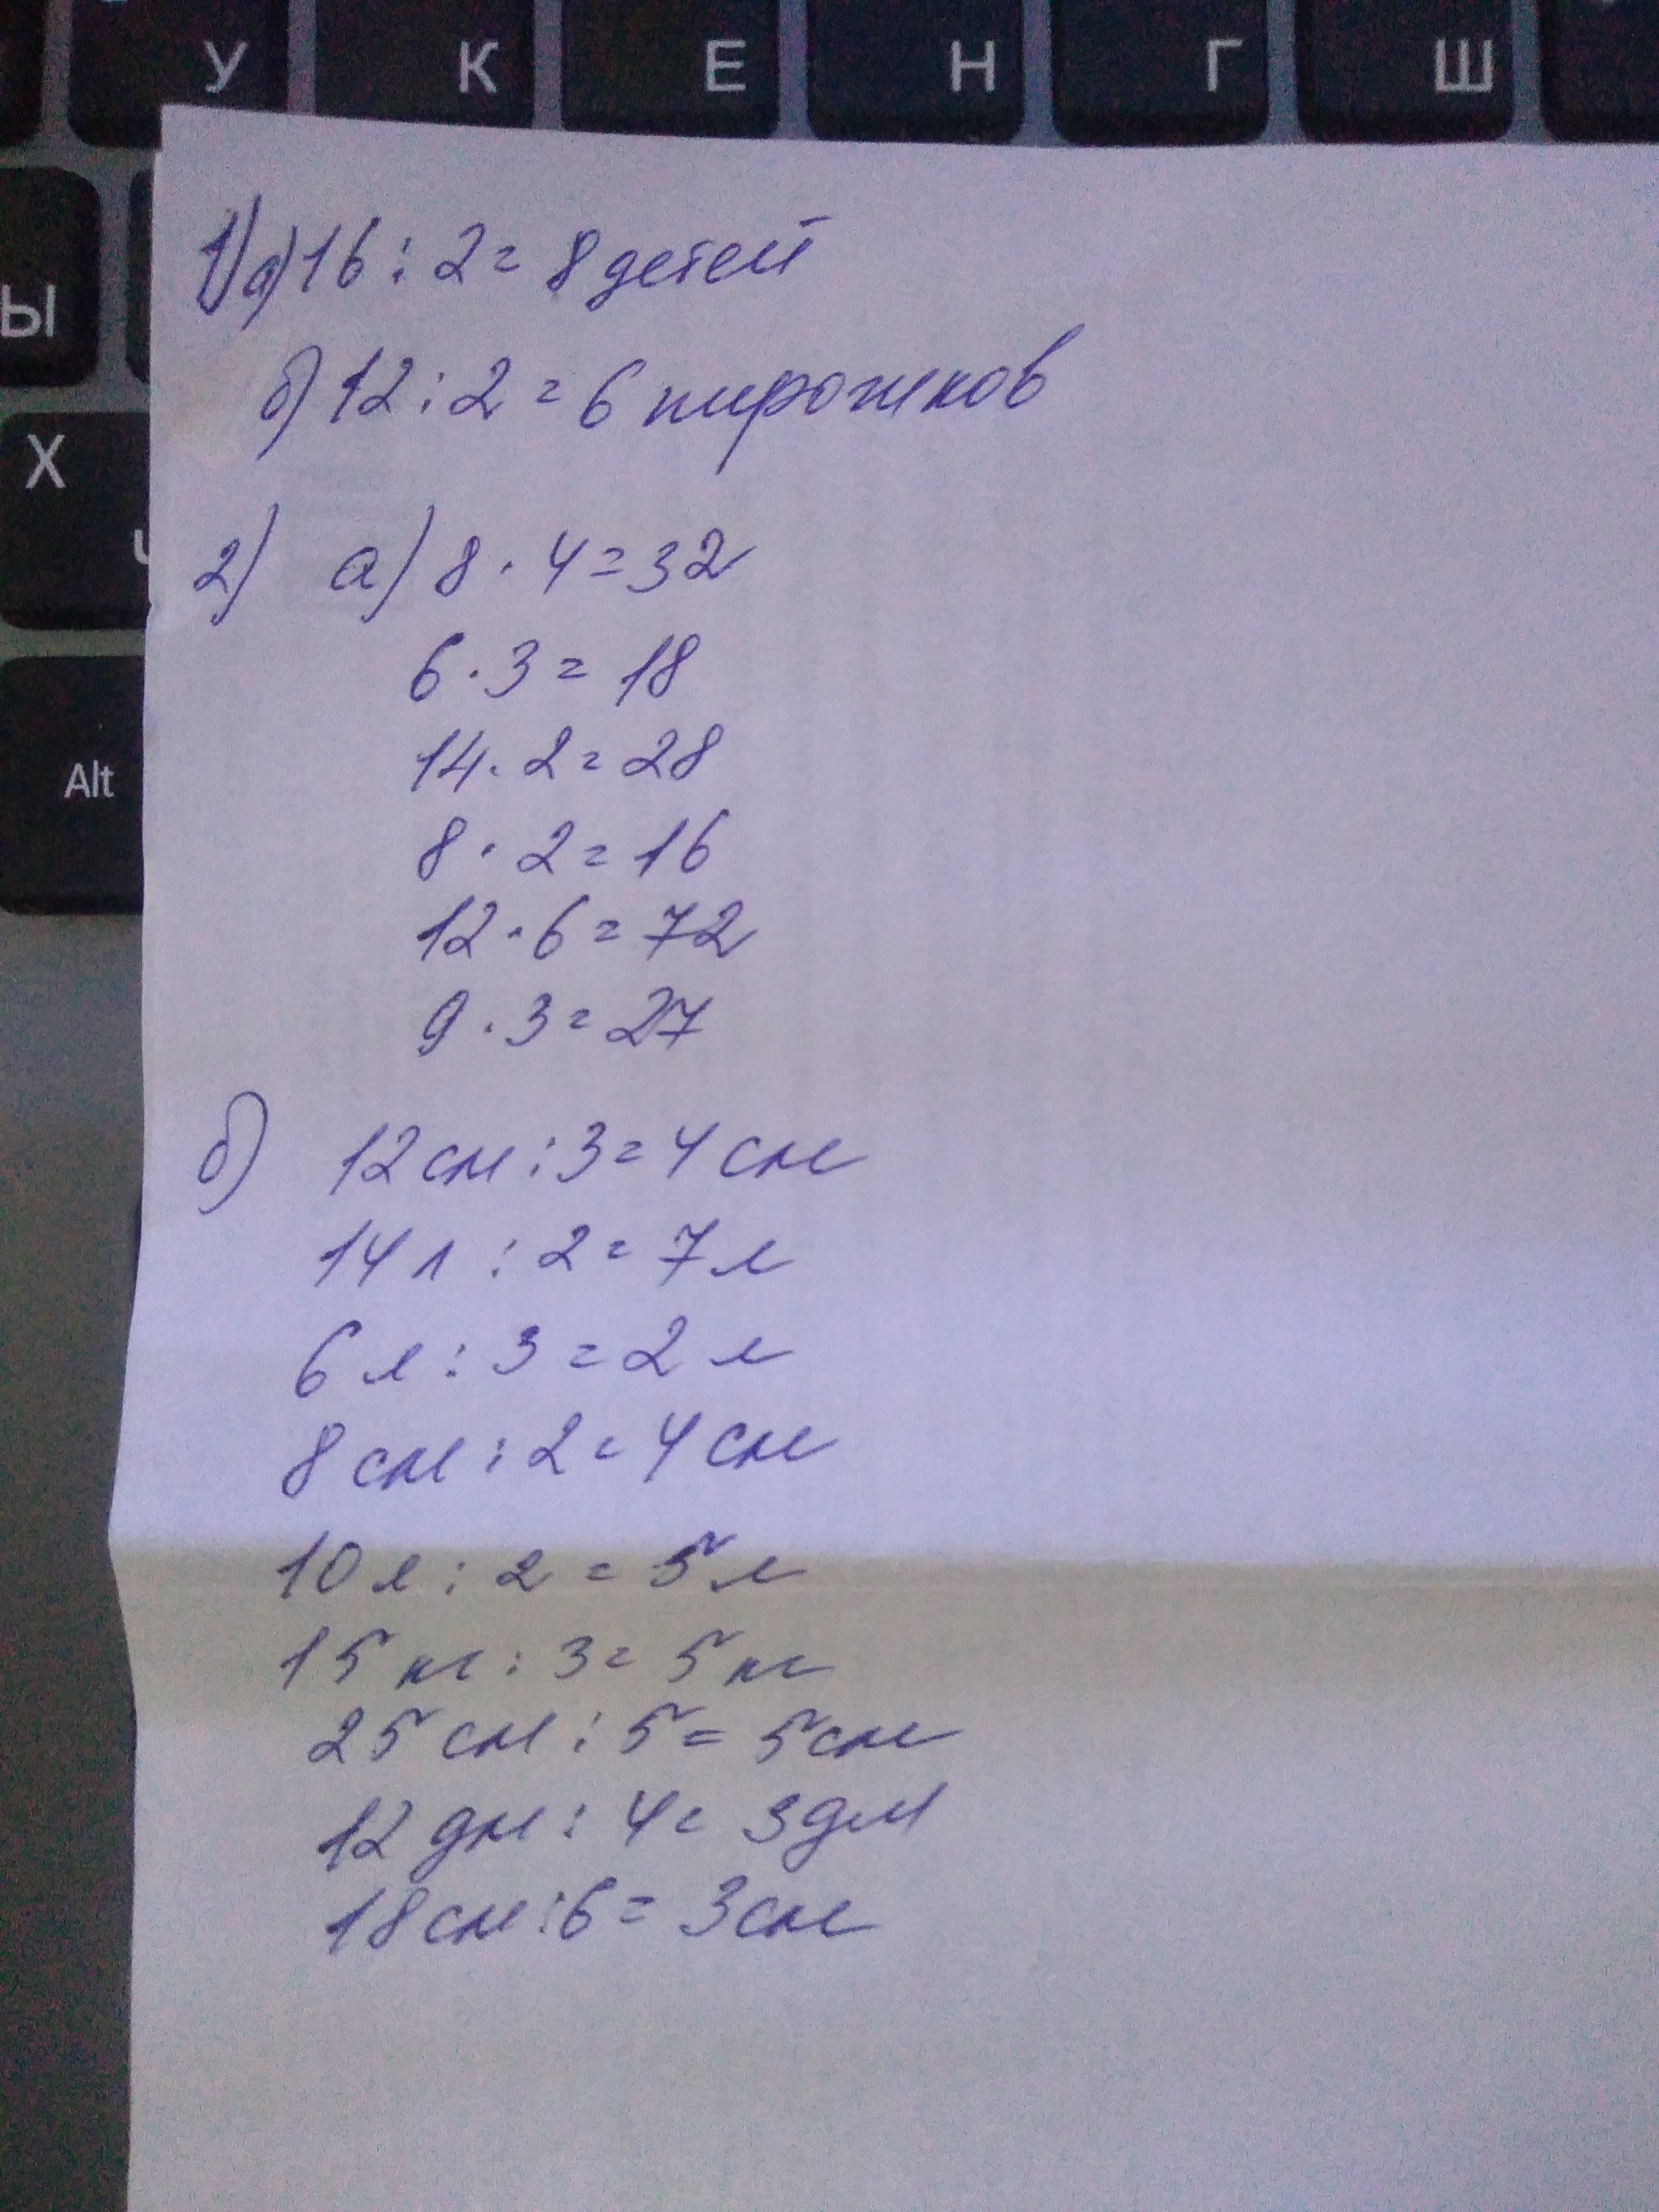 У К Е Н Г Ш
Ы
Х
Ч
Alt
1) а) 16 : 2 = 8 детей
б) 12 : 2 = 6 пирожков
2) а) 8 · 4 = 32
6 · 3 = 18
14 · 2 = 28
8 · 2 = 16
12 · 6 = 72
9 · 3 = 27
б) 12 см : 3 = 4 см
14 л : 2 = 7 л
6 л : 3 = 2 л
8 см : 2 = 4 см
10 л : 2 = 5 л
15 кг : 3 = 5 кг
25 см : 5 = 5 см
12 дм : 4 = 3 дм
18 см : 6 = 3 см